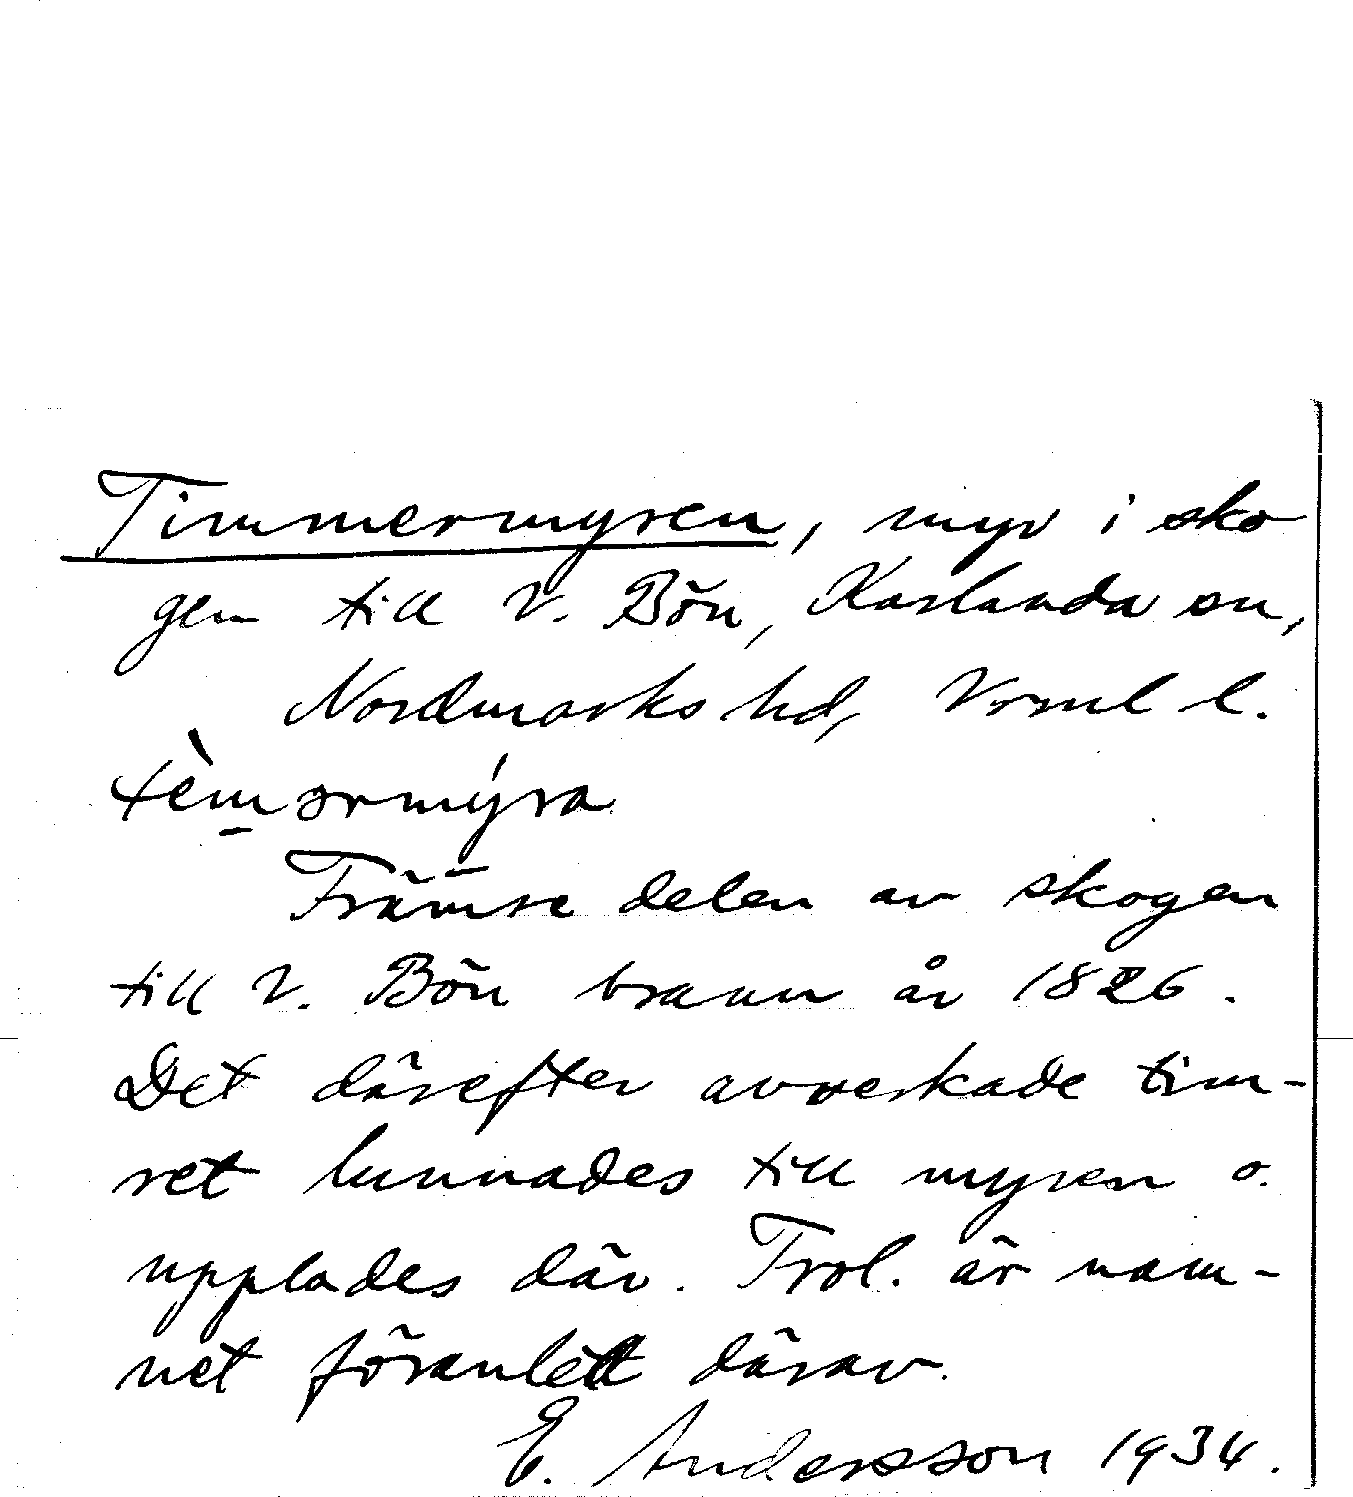 Timmermyren, myr i sko
gen till V. Bön, Karlanda sn,
Nordmarks hd, Vrml l.
tèm̲ərmýra
Främre delen av skogen
till V. Bön brann år 1826.
Det därefter avverkade tim-
ret lunnades till myren o.
upplades där. Trol. är nam-
net föranlett därav.
E. Andersson 1934.